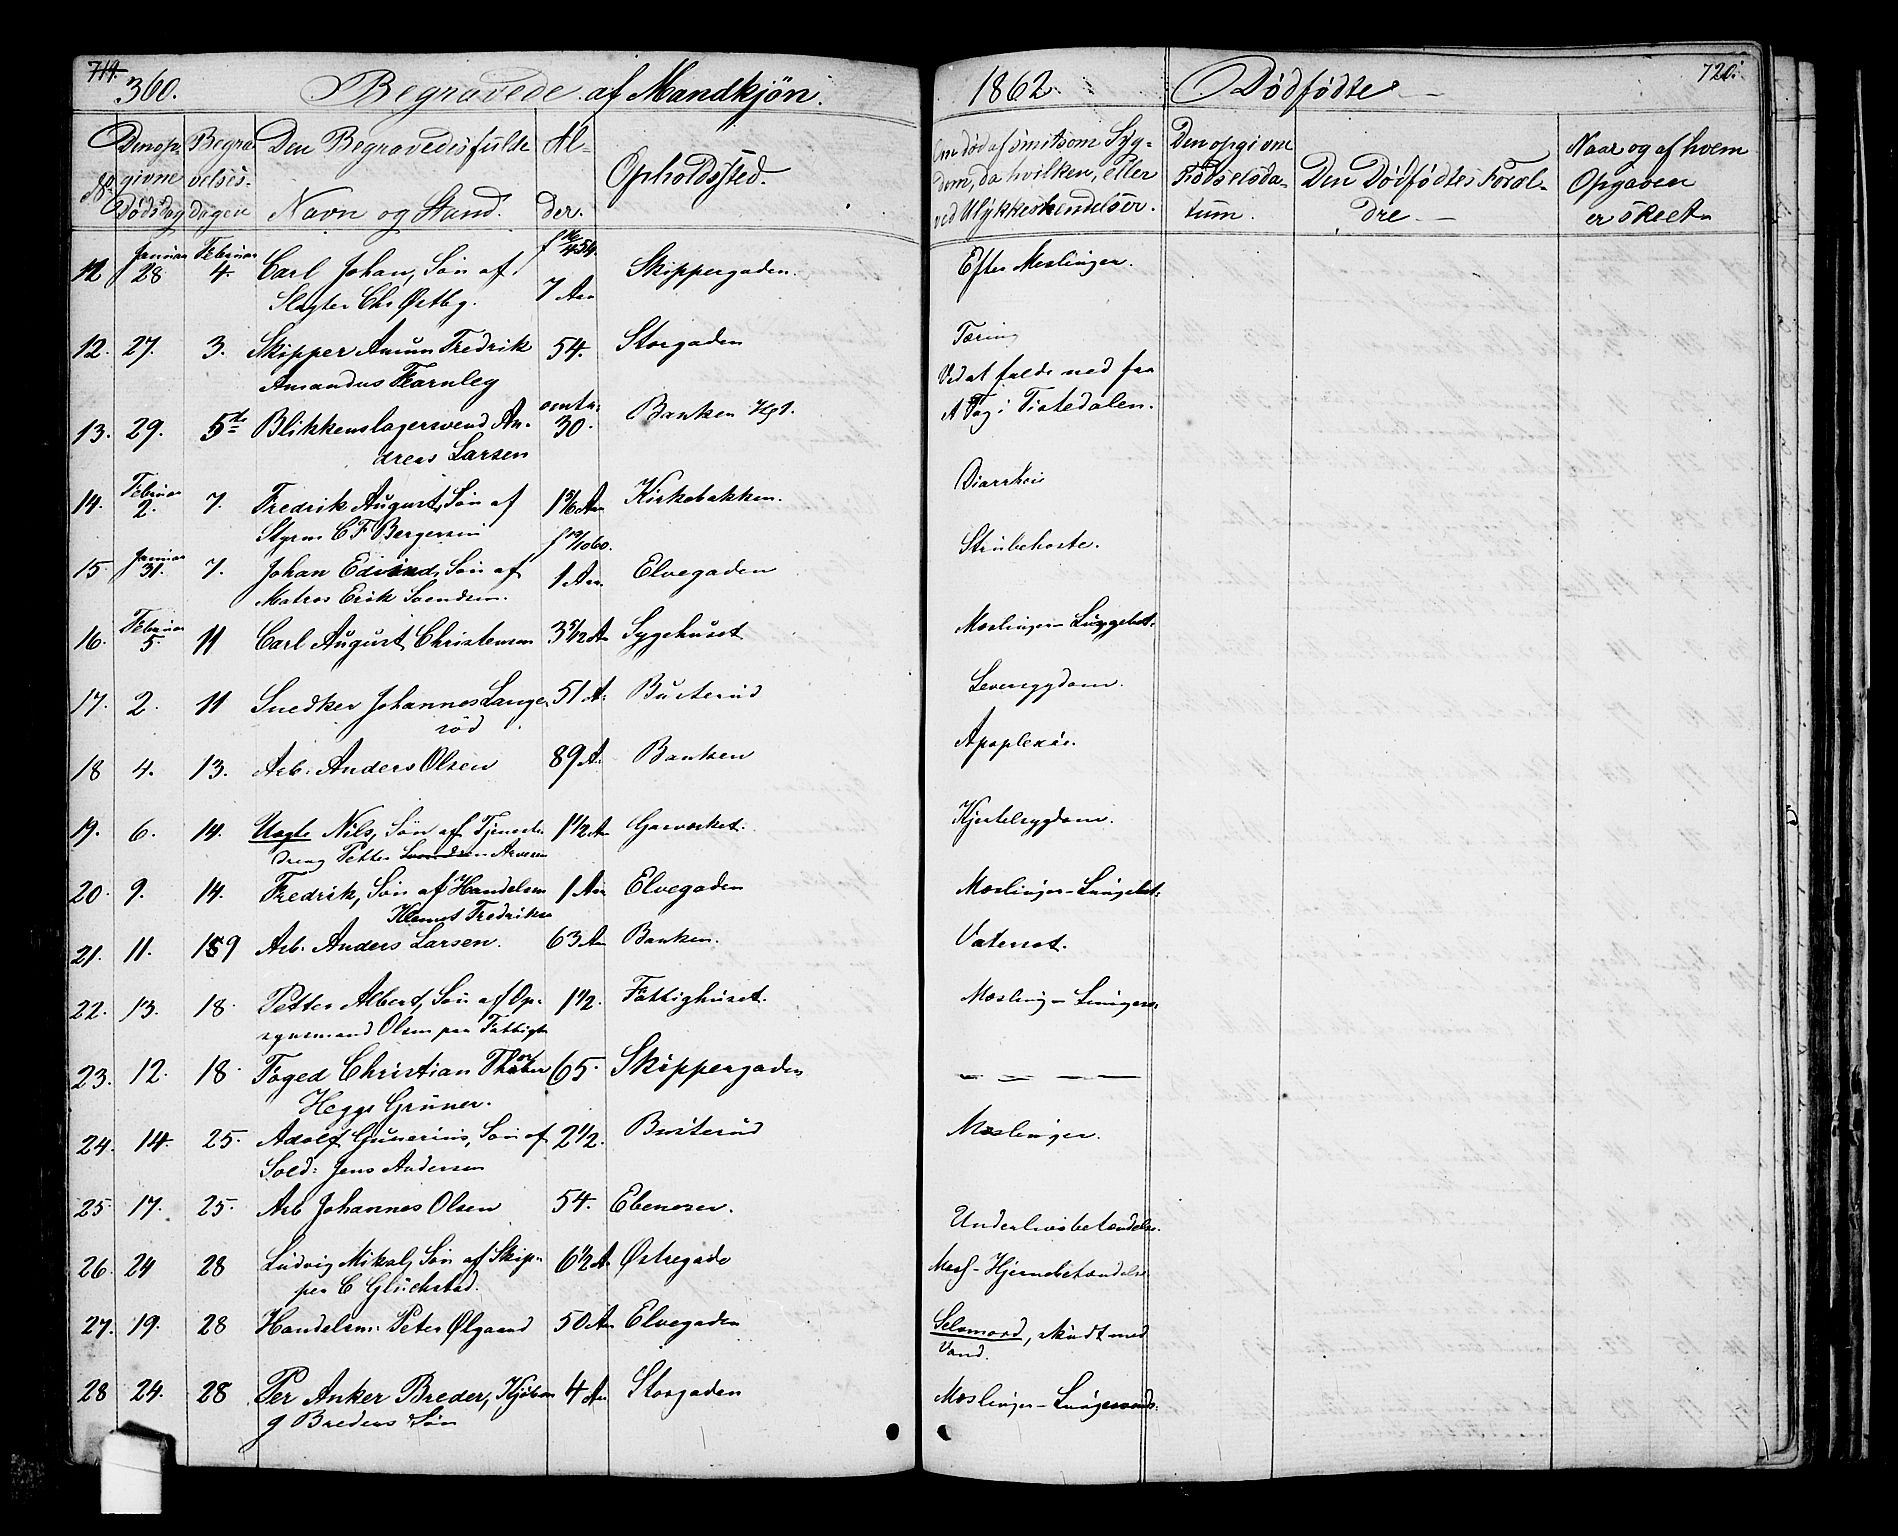 719.
360. Begravede af Mandkjøn.
1862. Dødfødte 720.
No. Den opgivne Dødsdag
Begravelsesdagen
Den Begravedes fulde Navn og Stand.
Alder.
Opholdssted.
Om død af smitsom Sygdom, da hvilken, eller ved Ulykkeshendelser.
Den opgivne Fødselsdatum.
Den Dødfødtes Forældre
Naar og af hvem Opgaven er skeet
12 Januar 28 Februar 4. Carl Johan, Søn af 7 Aar Skippergaden. Efter Meslinger.
Slagter Chr Østbg.
12. 27. 3. Skipper Amun Fredrik 54. Storgaden Tæring
Amandus Fearnley
13. 29. 5te Blikkenslagersvend An- omtr. 30. Banken Ved at falde ned fra
dreas Larsen A Tag i Tistedalen.
14. Februar 2. 7. Fredrik August, Søn af 1 Aar Kirkebakken. Diarrhoi
Styrm C F Bergersen
15 Januar 31. 7. Johan Edvard, Søn af 1 Aar Elvegaden Strubehoste.
Matros Erik Svendsen.
16. Februar 5. 11 Carl August Christensen 3 5/12 A Sygehuset Meslinger - Lungebet.
17. 2. 11 Snedker Johannes Lange 51 A. Busterud Leversygdom.
rød
18 4. 13. Arb. Anders Olsen 89 A. Banken Apoplexie.
19. 6. 14. Uægte Nils, Søn af Tjeneste 1 1/2 A Gasverket. Kjertelsygdom.
dreng Petter
20. 9. 14. Fredrik, Søn af Handelsm 1 Aar Elvegaden Meslinger - Lungebet.
Klemet Fredriks
21. 11. 19 Arb. Anders Larsen. 63 Aar Banken. Vatersot.
22. 13. 18. Petter Albert, Søn af Op- 1 1/2. Fattighuset. Mesling -
synsmand Olsen paa Fattigh
23. 12. 18. Foged Christian 65. Skippergaden
Hegge Grüner.
24. 14. 25. Adolf Gunerius, Søn af 2 1/2. Busterud Meslinger.
Sold: Jens Andersen
25 17. 25. Arb Johannes Olsen 54. Ebeneser. Underlivsbetændelse.
26. 24 28 Ludvig Mikal, Søn af Skip- 6 1/2 A Østregade Mesl - Hjernebetændelse
per C Glückstad.
27. 19. 28 Handelsm: Peter Ølgaard 50 Aar Elvegaden Selvmord, skudt med
Vand.
28 24. 28 Per Anker Breder, Kjøbm 4 Aar Storgaden Meslinger -
g Breders Søn